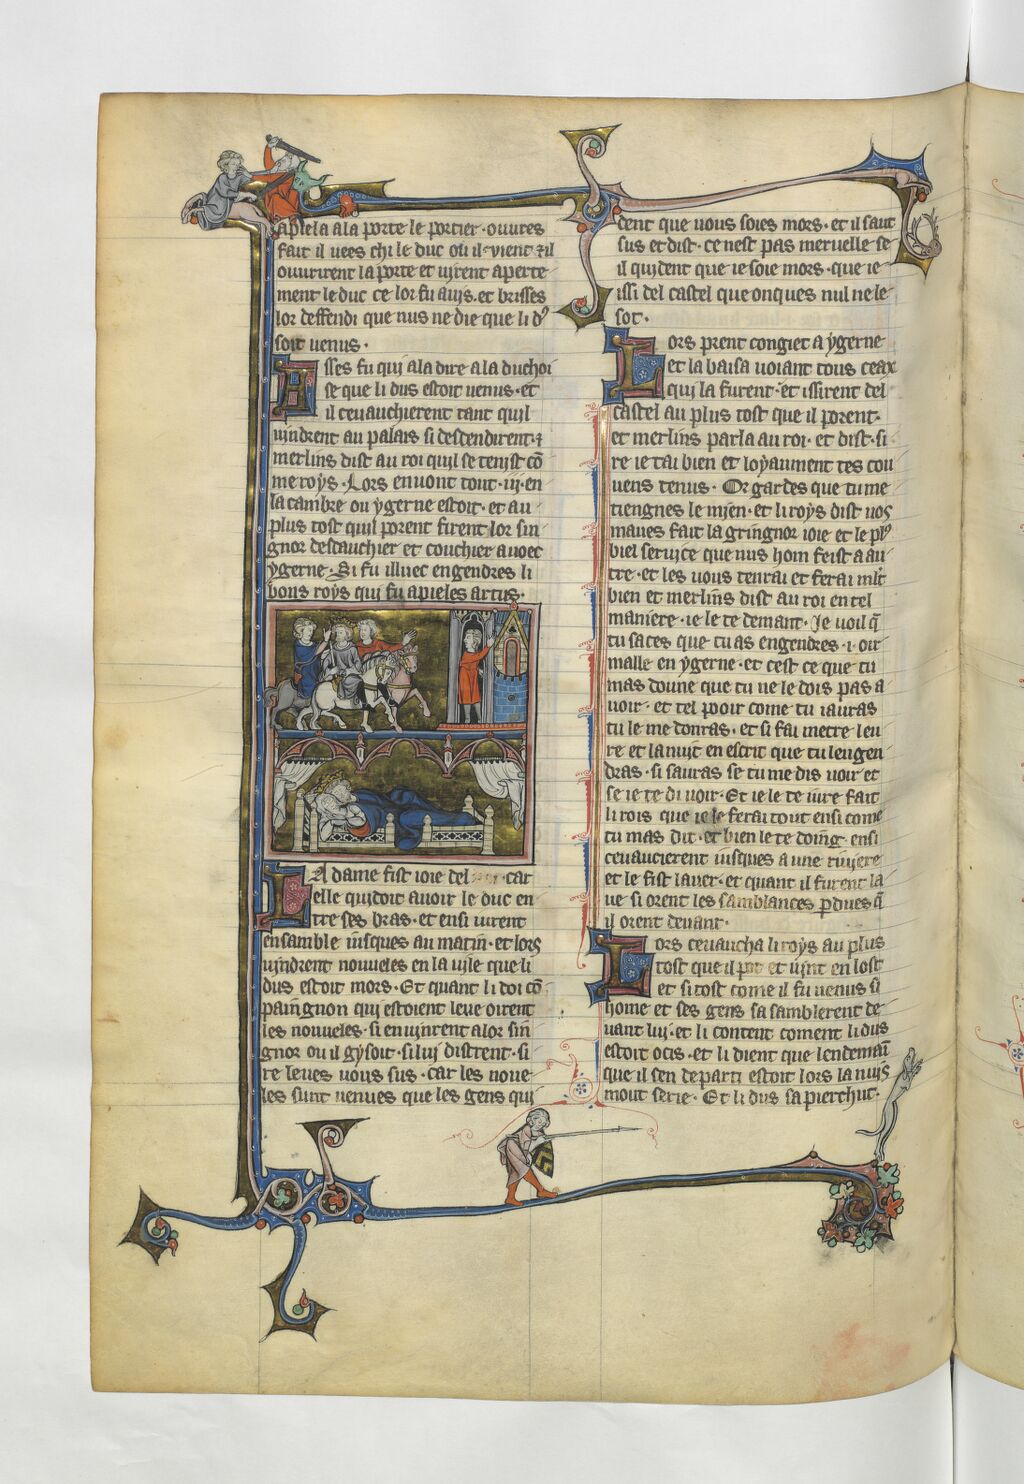 apiela a la porte le portier · ouures
fait il uees chi le duc ou il uient ⁊ il
ouurirent la porte et uirent aperte
ment le duc ce lor fu auis · et brisses
lor deffendi que nus ne die que li dꝰ
soit uenus ·
Asses fu qui ala dire a la duchoi
se que li dus estoit uenus · et
il ceuauchierent tant quil
uindrent au palais si descendirent · ⁊
merlins dist au roi quil se tenist cō
me roys · Lors en uont tout · iij · en
la cambre ou ygerne estoit · et au
plus tost quil porent firent lor sin
gnor descauchier et couchier auoec
ygerne · Si fu illuec engendres li
bons roys qui fu apieles artus ·
La dame fist ioie del car
elle quidoit auoir le duc en
tre ses bras · et ensi iurent
ensamble iusques au matin · et lors
uindrent nouueles en la uile que li
dus estoit mors · Et quant li doi cō
paingnon qui estoient leue oirent
les nouueles · si en uinrent a lor sin
gnor ou il gysoit · si lui distrent · si
re leues uous sus · car les noue
les sunt uenues que les gens qui
dent que uous soies mors · et il saut
sus et dist · ce nest pas meruelle se
il quident que ie soie mors · que ie
issi del castel que onques nul ne le
sot ·
Lors prent congiet a ygerne
et la baisa uoiant tous ceax
qui la furent · et issirent del
castel au plus tost que il porent ·
et merlins parla au roi · et dist · si
re ie tai bien et loyaument tes cou
uens tenus · Or gardes que tu me
tiengnes le mien · et li roys dist uos
maues fait la gringnor ioie et le plꝰ
biel seruice que nus hom feist a au
tre · et les uous tenrai et ferai ml't
bien et merlins dist au roi en tel
maniere · ie le te demant · Je uoil q̄
tu saces que tu as engendres · i · oir
malle en ygerne · et cest ce que tu
mas doune que tu ne le dois pas a
uoir · et tel pooir come tu i auras
tu le me donras · et si fai metre leu
re et la nuit en escrit que tu lengen
dras · si sauras se tu me dis uoir et
se ie te di uoir · Et ie le te iure fait
li rois que ie le ferai tout ensi come
tu mas dit · et bien le te doing · ensi
ceuaucierent iusques a une riuiere
et le fist lauer · et quant il furent la
ue si orent les samblances perdues q̄
il orent deuant ·
Lors ceuaucha li roys au plus
tost que il pot et uint en lost
et si tost come il fu uenus si
home et ses gens sa samblerent de
uant lui · et li content coment li dus
estoit ocis · et li dient que lendemain
que il sen departi estoit lors la nuis
mout serie · Et li dus sapierchut ·